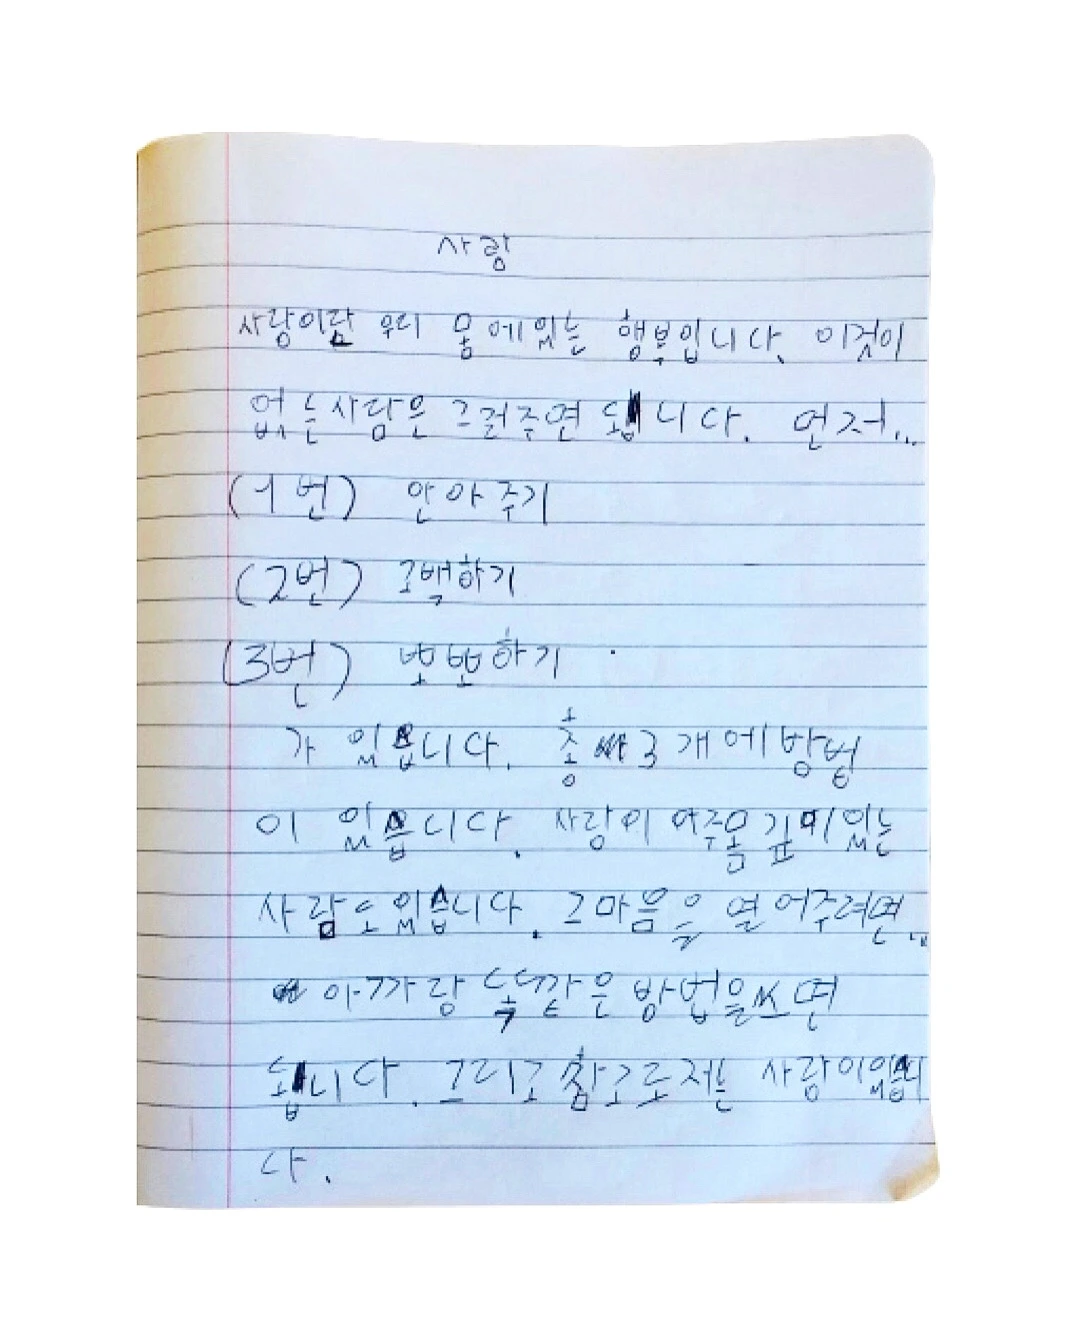 사랑
사랑이란 우리 몸에있는 행부입니다. 이것이
없는사람은 그걸주면 됍니다. 먼저...
(1번) 안아주기
(2번) 고백하기
(3번) 뽀뽀하기
가 있습니다. 총 3개에방법
이 있습니다. 사랑이 아주몸깊피있는
사람도있습니다. 그마음을 열어주려면..
아까랑 똑같은 방법을쓰면
됍니다. 그리고참고로저는 사랑이있습니
다.